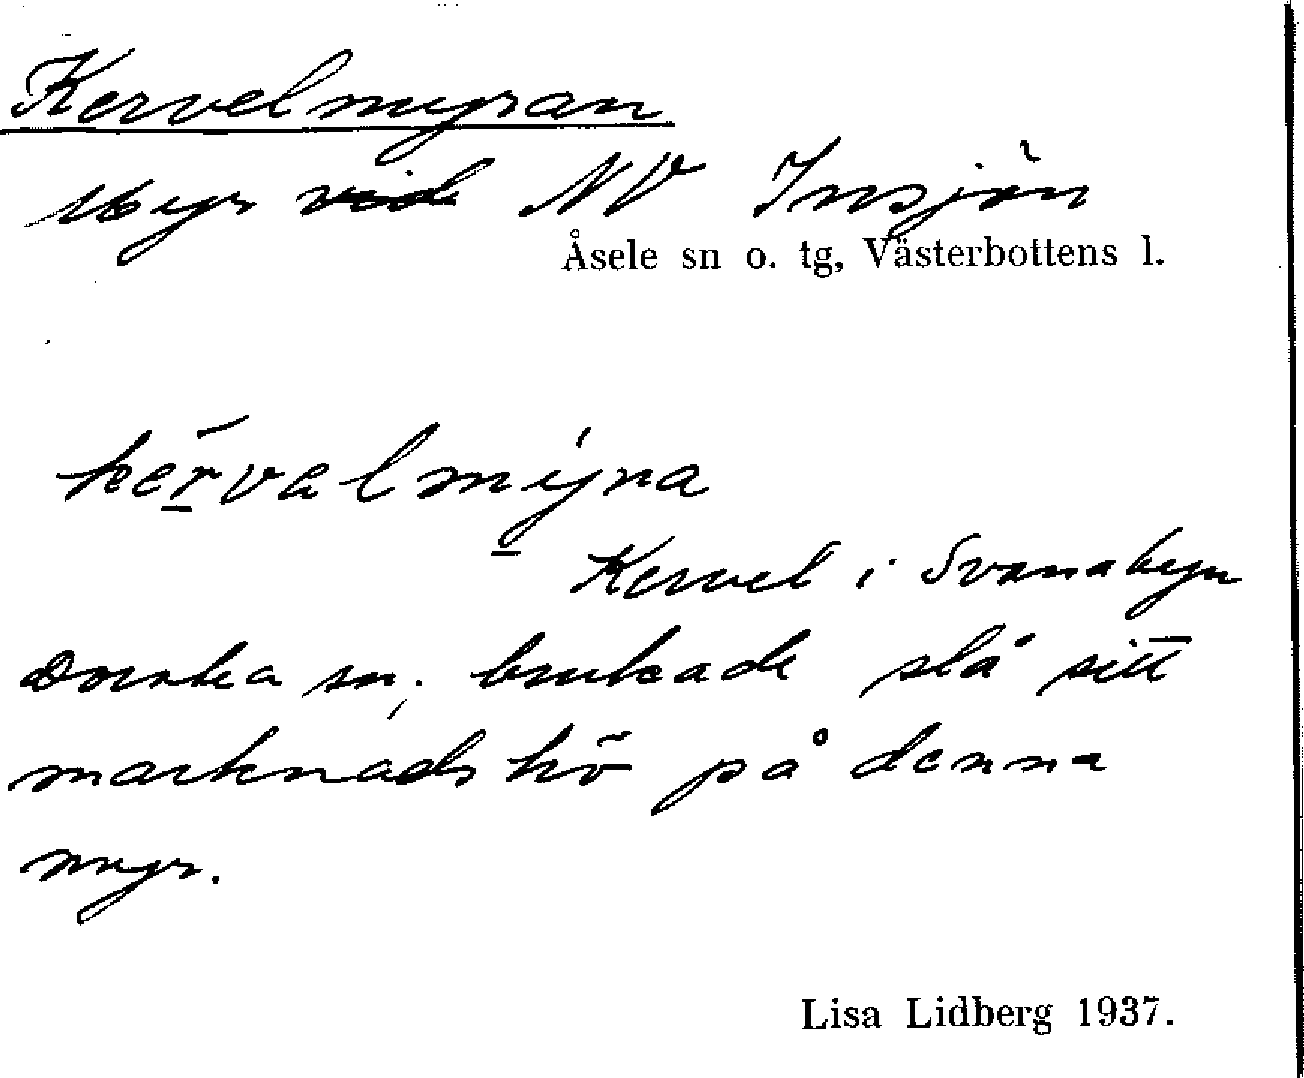 Kervelmyran
Myr vid NV Insjön
Åsele sn o. tg, Västerbottens l.
kervalmýra
Kervel i Svanabyn
Dorotea sn, brukade slå sitt
marknadshö på denna
myr.
Lisa Lidberg 1937.